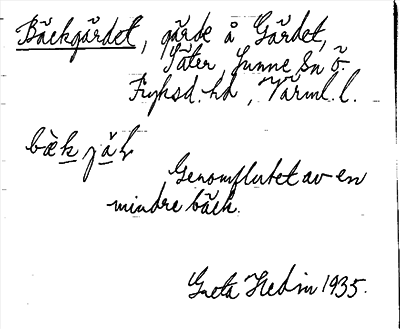 Bäckgärdet, gärde å Gärdet,
Säter, Sunne sn ö.
Fryksd. hd, Värml. l.
bæ̀k jä̀ṭ
Genomflutet av en
mindre bäck.
Greta Hedin 1935.